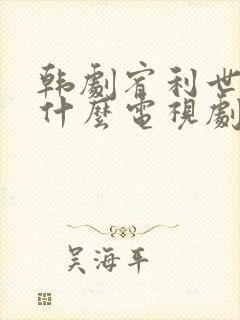 韩劇宥利世
什麼電視劇
吴海平